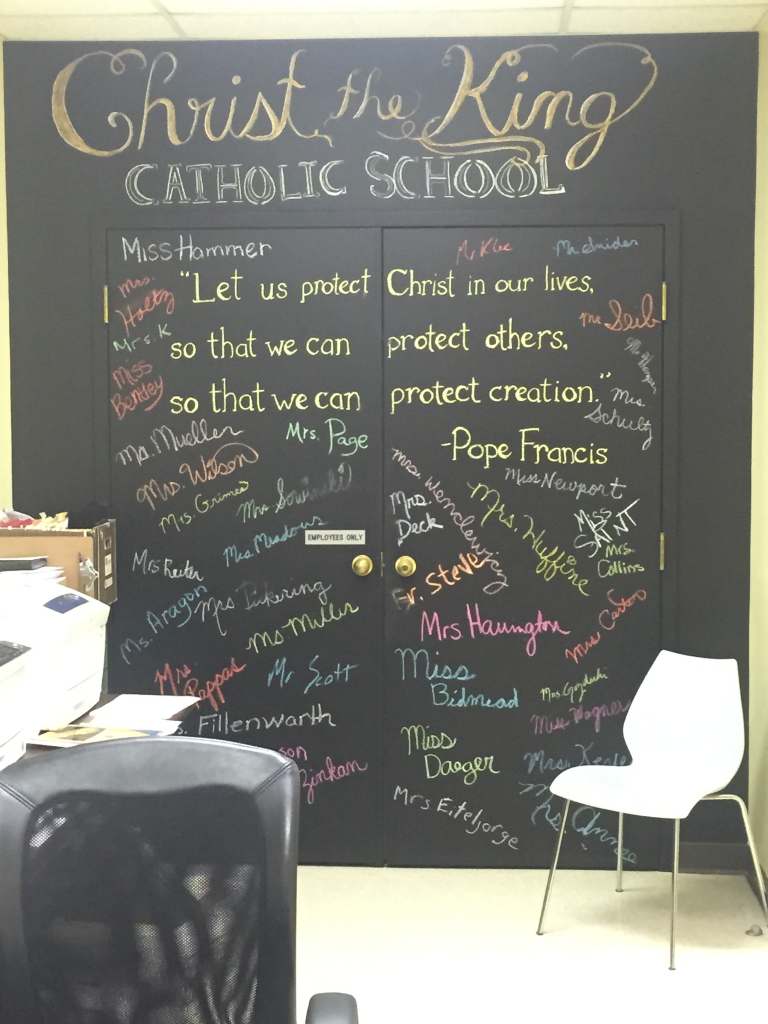 Christ the King
CATHOLIC SCHOOL
Miss Hammer
Mr Klee
Mr Snider
Mrs. Holtz
"Let us protect Christ in our lives,
Mr. Seib
Mrs. K
so that we can protect others,
Miss Bentley
so that we can protect creation."
Mrs Schultz
Ms. Mueller
Mrs. Page
-Pope Francis
Mrs. Wilson
Miss Newport
Mrs. Grimes
Mrs Sowinski
Mrs. Wenclewicz
Mrs. Deck
Mrs. Huffine
Miss SAINT
Mrs. Collins
Mrs Meadows
EMPLOYEES ONLY
Mrs Reiter
Fr. Steve
Ms. Aragon
Mrs Pickering
Ms Miller
Mrs
Mrs.
Mrs. Pappas
Mr Scott
Miss Bidmead
Mrs.
s. Fillenwarth
Miss Wagner
Miss Daeger
son
Zinkan
Mrs.
Mrs Eiteljorge
Mrs. Anne